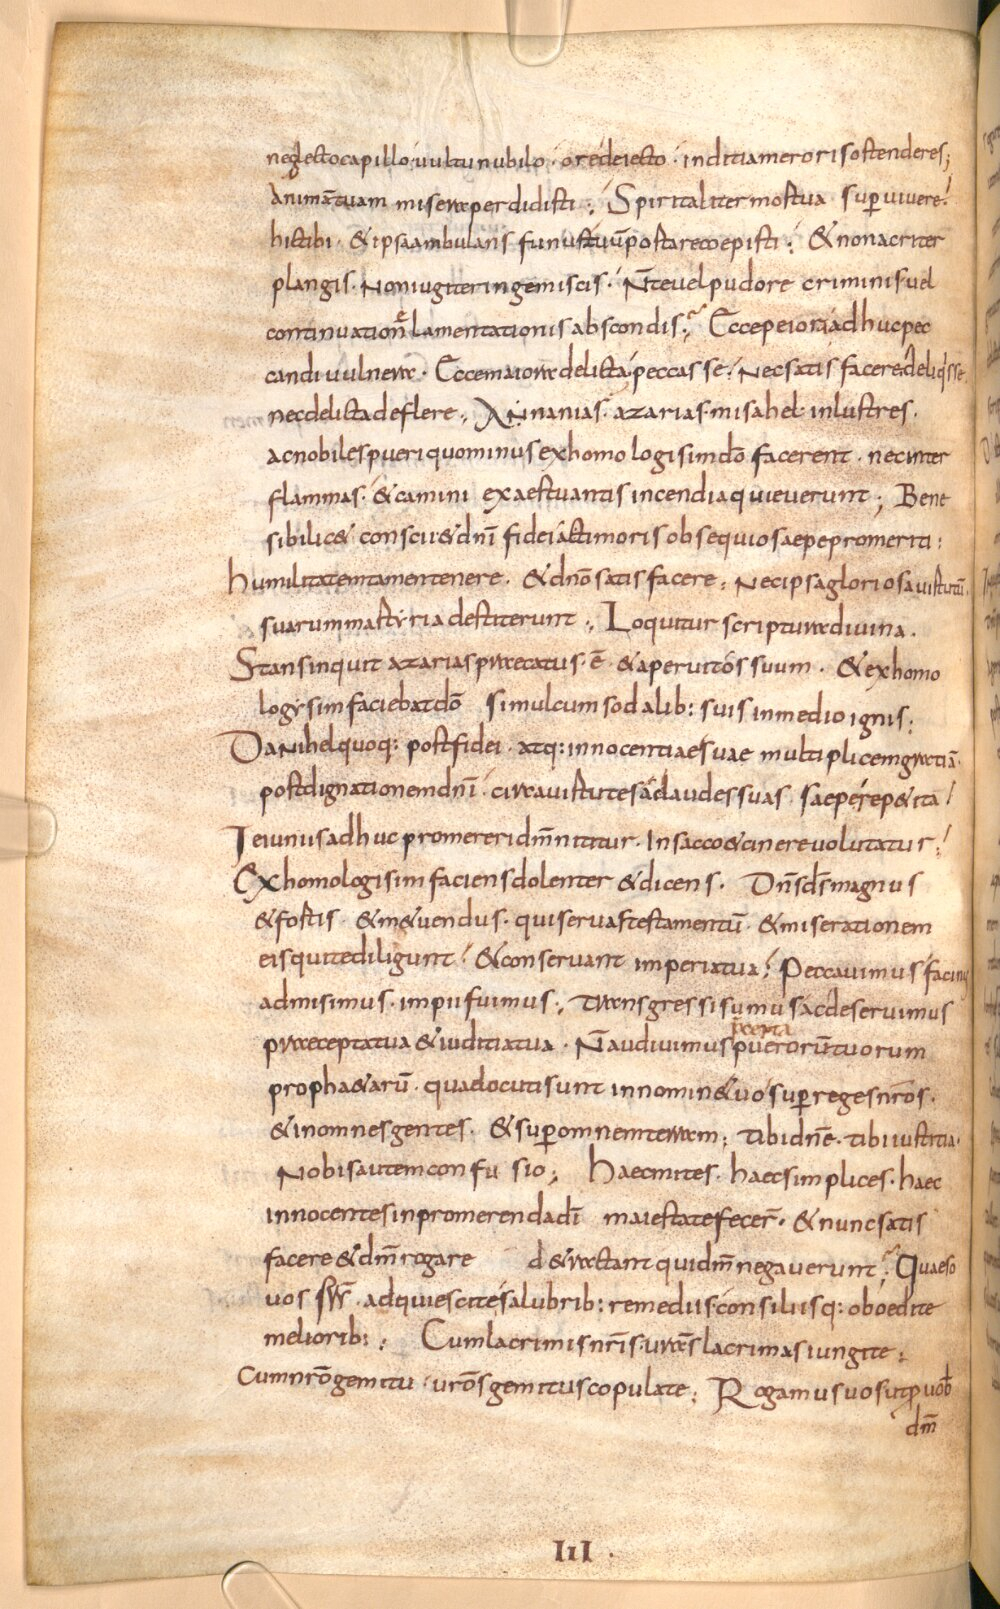 neglecto capillo uultu nubilo · ore deiecto · inditia meroris ostenderes;
Animā tuam misera perdidisti; Spiritaliter mortua superuiuere
hic tibi · & ipsa ambulans funus tuū portare coepisti; & non acriter
plangis · Non iugiter ingemiscis · N̄ te uel pudore criminis uel
continuationē lamentationis abscondis; Ecce peiora adhuc pec
candi uulnera · Ecce maiora delicta peccasse · Nec satisfacere deliq'sse
nec delicta deflere; Annanias · azarias · misahel · inlustres ·
ac nobiles pueri quominus exhomologisim dō facerent · nec inter
flammas · & camini exaestuantis incendia quieuerunt; Bene
sibi lic& conscii & dn̄i fidei ac timoris obsequio saepe promeriti:
humilitatem tamen tenere · & dn̄o satisfacere; Nec ipsa gloriosa uirtutū
suarum martyria destiterunt; Loquitur scriptura diuina ·
Stans inquit azarias praecatus · ē · & aperuit os suum · & exhomo
logysim faciebat dō simul cum sodalib: suis in medio ignis;
Danihel quoq: post fidei · atq: innocentiae suae multiplicem gratiā ·
post dignationem dn̄i · circa uirtutes ac laudes suas saepe rep&ita
Ieiuniis adhuc promereri dm̄ nititur · In sacco & cinere uolutatur;
Exhomologisim faciens dolenter & dicens · Dn̄s ds̄ magnus
& fortis · & m&uendus · qui seruas testamentū & miserationem
eis qui te diligunt & conseruant imperia tua; Peccauimus facinus
admisimus · impii fuimus; transgressi sumus ac deseruimus
praecepta tua & iuditia tua · N̄ audiuimus puerorū tuorum
proph&arū · quae locuti sunt in nomin& uo super reges nr̄os ·
& in omnes gentes · & super omnem terram; Tibi dn̄e · tibi iustitia ·
Nobis autem confusio; haec mites · haec simplices · haec
innocentes in promerenda dī maiestate fecer̄ · & nunc satis
facere & dm̄ rogare d&ractant qui dm̄ negauerunt; Quaeso
uos fr̄s · adquiescite salubrib: remediis consiliisq: oboedite
meliorib:; Cum lacrimis nr̄is · uras lacrimas iungite;
Cum nr̄o gemitu · uros gemitus copulate; Rogamus uos ut pro uob
dm̄
III ·